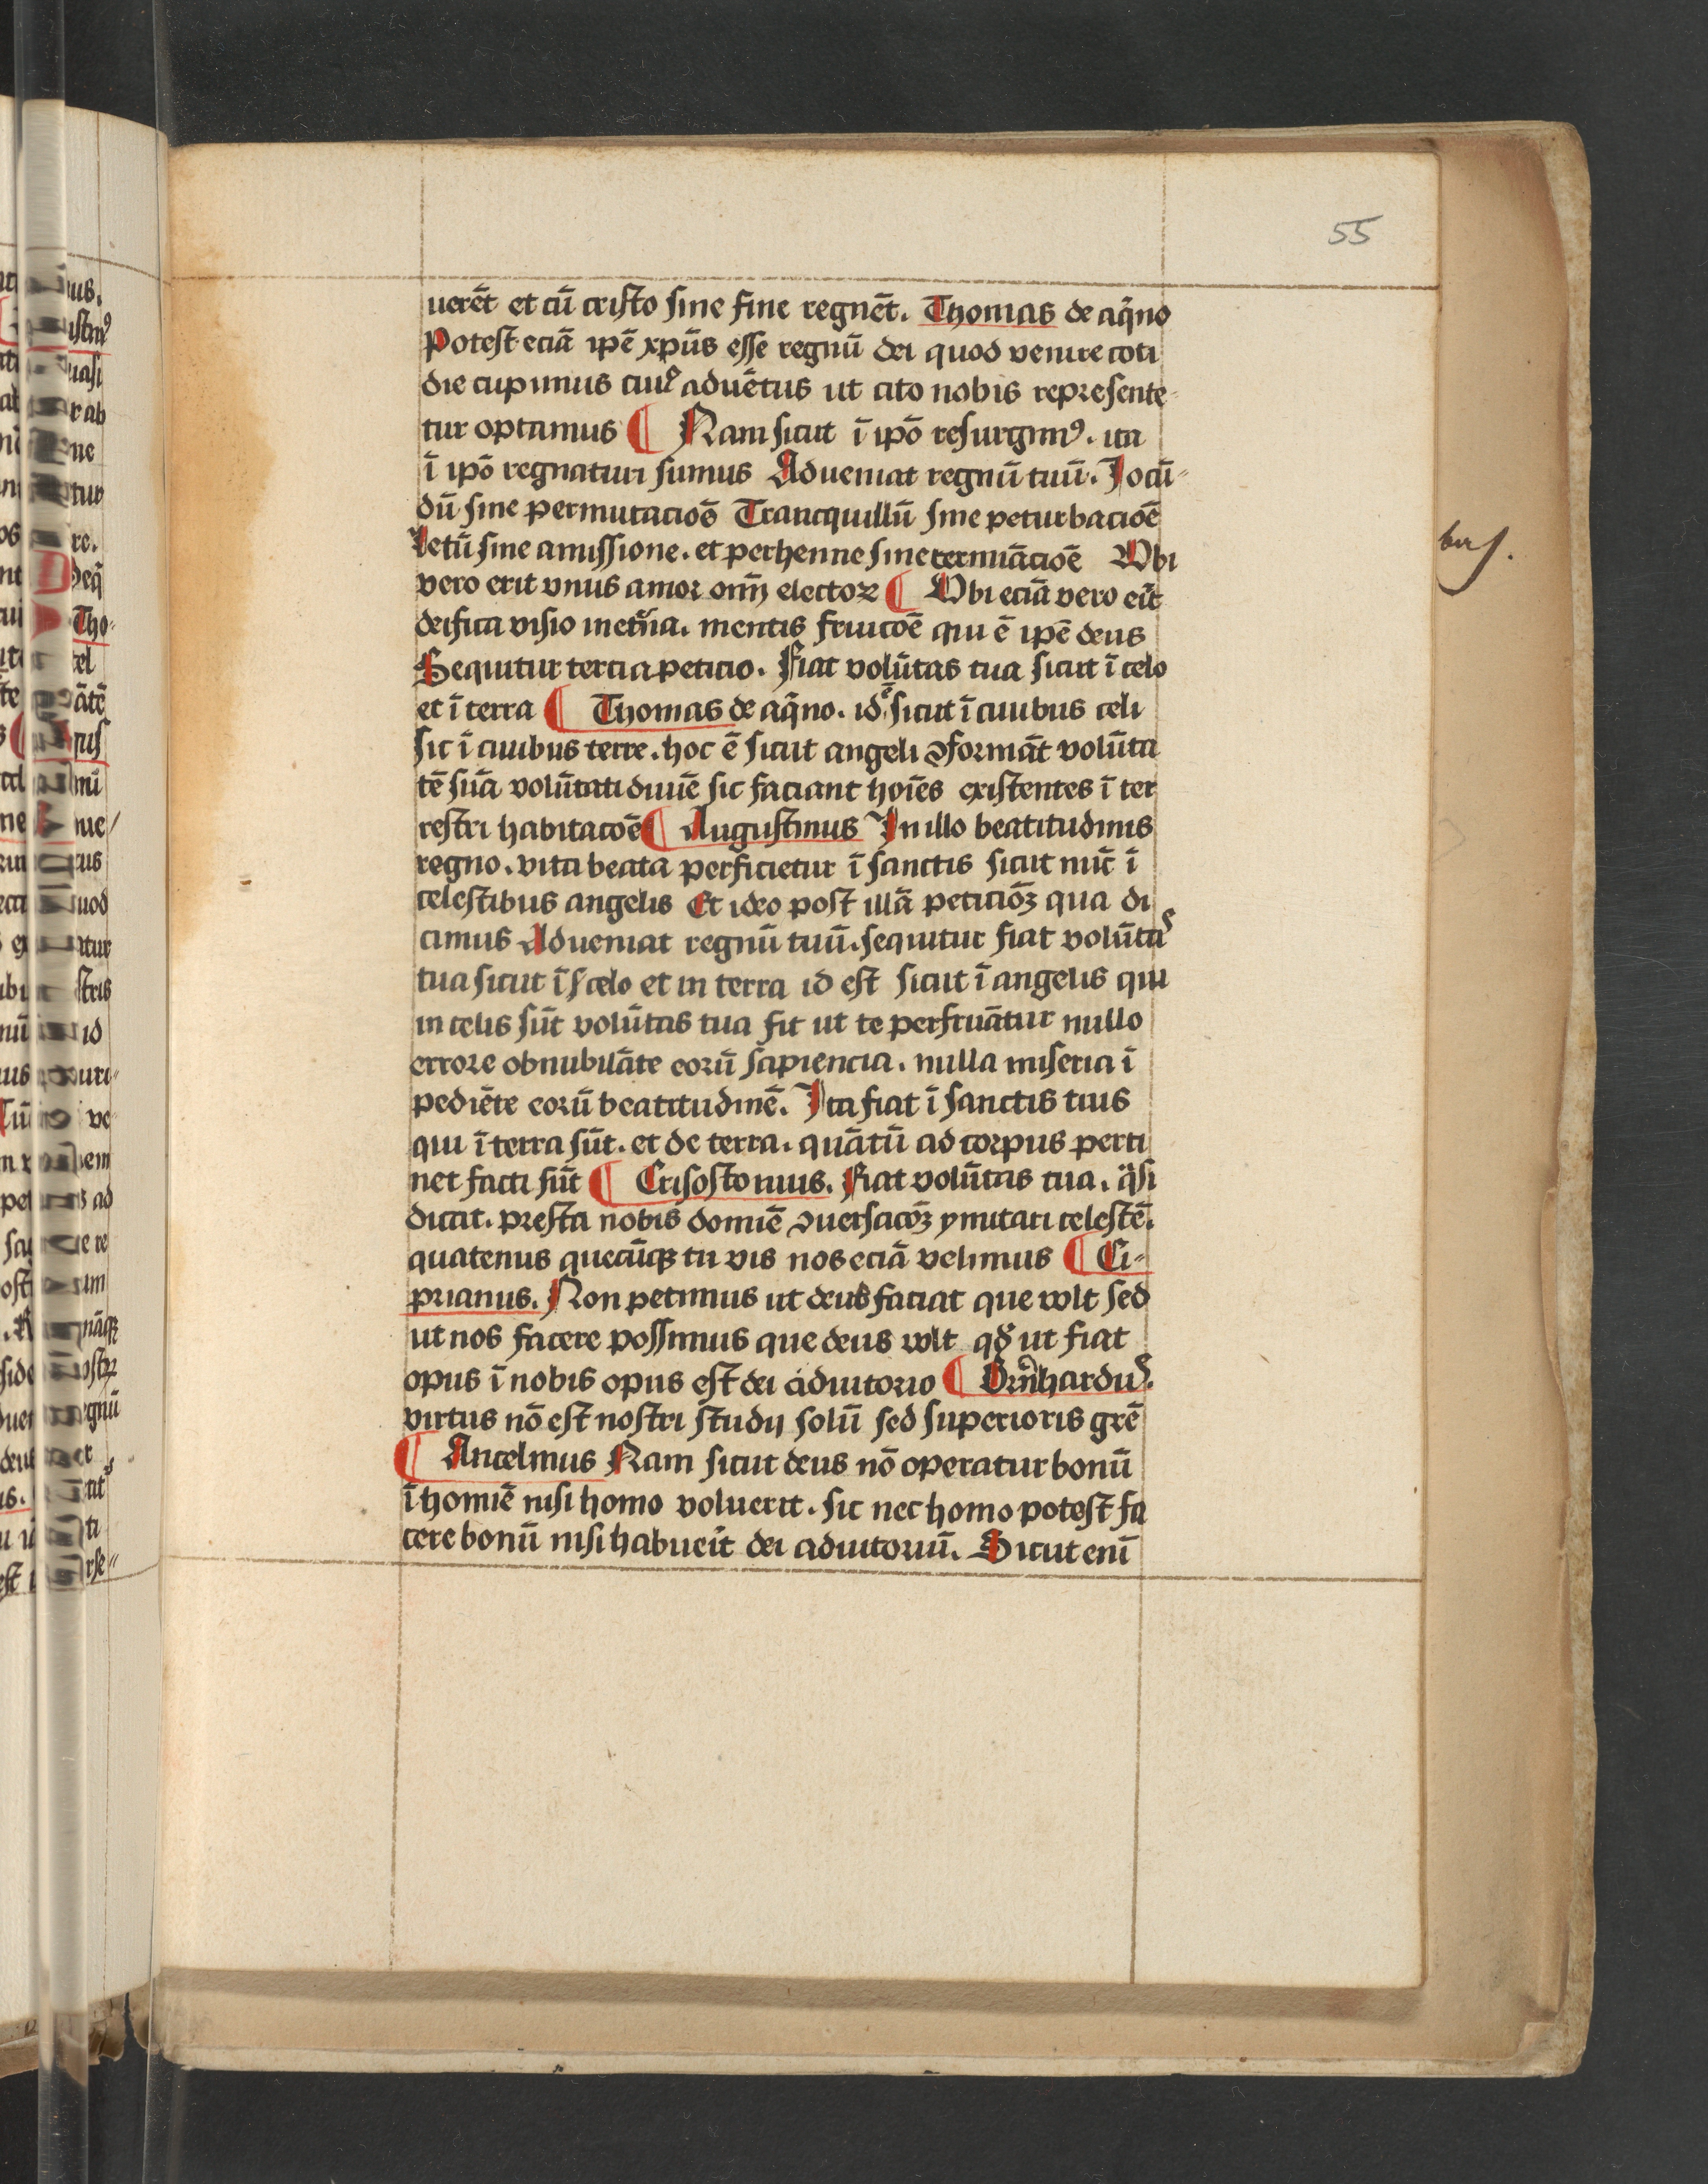 55
uerēt et cū cristo sine fine regnēt. Thomas de aq̄no
Potest eciā ipē xp̄us esse regnū dei quod venire coti
die cupimus cuiꝰ aduētus ut cito nobis represente-
tur optamus ¶ Nam sicut ī ipō resurgimꝰ. ita
ī ipō regnaturi sumus Adueniat regnū tuū. Jocū-
dū sine permutacioē Trancquillū sine peturbacioē
Letū sine amissione. et perhenne sine termīacioē Vbi
vero erit vnus amor om̄ electoꝝ ¶ Vbi eciā vero eīt
deifica visio inet̄na. mentis fruicōē qui ē ipē deus
Sequitur tercia peticio. Fiat volūtas tua sicut ī celo
et ī terra ¶ Thomas de aq̄no. id ē sicut ī ciuibus celi
sic ī ciuibus terre. hoc ē sicut angeli ꝯformāt volūta
tē suā volūtati diuīe sic faciant hoīes existentes ī ter
restri habitacōē ¶ Augustinus In illo beatitudinis
regno. vita beata perficietur ī sanctis sicut nūc ī
celestibus angelis Et ideo post illā peticiōꝫ qua di
cimus Adueniat regnū tuū. sequitur fiat volūtaꝰ
tua sicut ī celo et in terra id est sicut ī angelis qui
in celis sūt volūtas tua fit ut te perfruātur nullo
errore obnubilāte eorū sapiencia. nulla miseria ī
pediēte eorū beatitudinē. Ita fiat ī sanctis tuis
qui ī terra sūt. et de terra. quātū ad corpus perti
net facti sūt ¶ Crisostomus. Fiat volūtas tua. q̄si
dicat. presta nobis domīe ꝯuersacōꝫ ymitari celestē.
quatenus quecūqꝫ tu vis nos eciā velimus ¶ Ci-
prianus. Non petimus ut deus faciat que wlt sed
ut nos facere possimus que deus wlt qd̄ ut fiat
opus ī nobis opus est dei adiutorio ¶ Bern̄harduꝰ.
virtus nō est nostri studij solū sed superioris grē
¶ Ancelmus Nam sicut deus nō operatur bonū
ī homīe nisi homo voluerit. sic nec homo potest fa
cere bonū nisi habueīt dei adiutoriū. Sicut enī